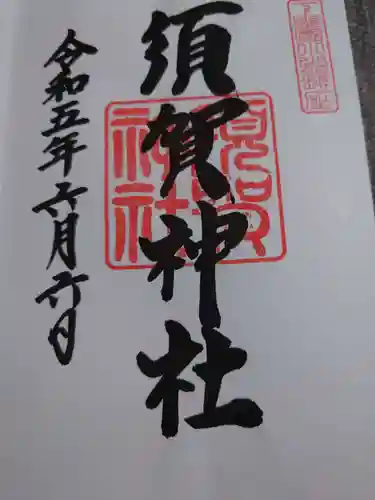 須賀神社
令和五年六月六日
須賀神社